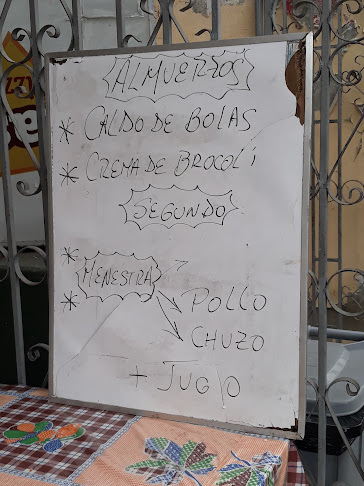 ALMUERZOS
* CALDO DE BOLAS
* CREMA DE BROCOLI
SEGUNDO
* MENESTRA
* POLLO
CHUZO
+ JUGO